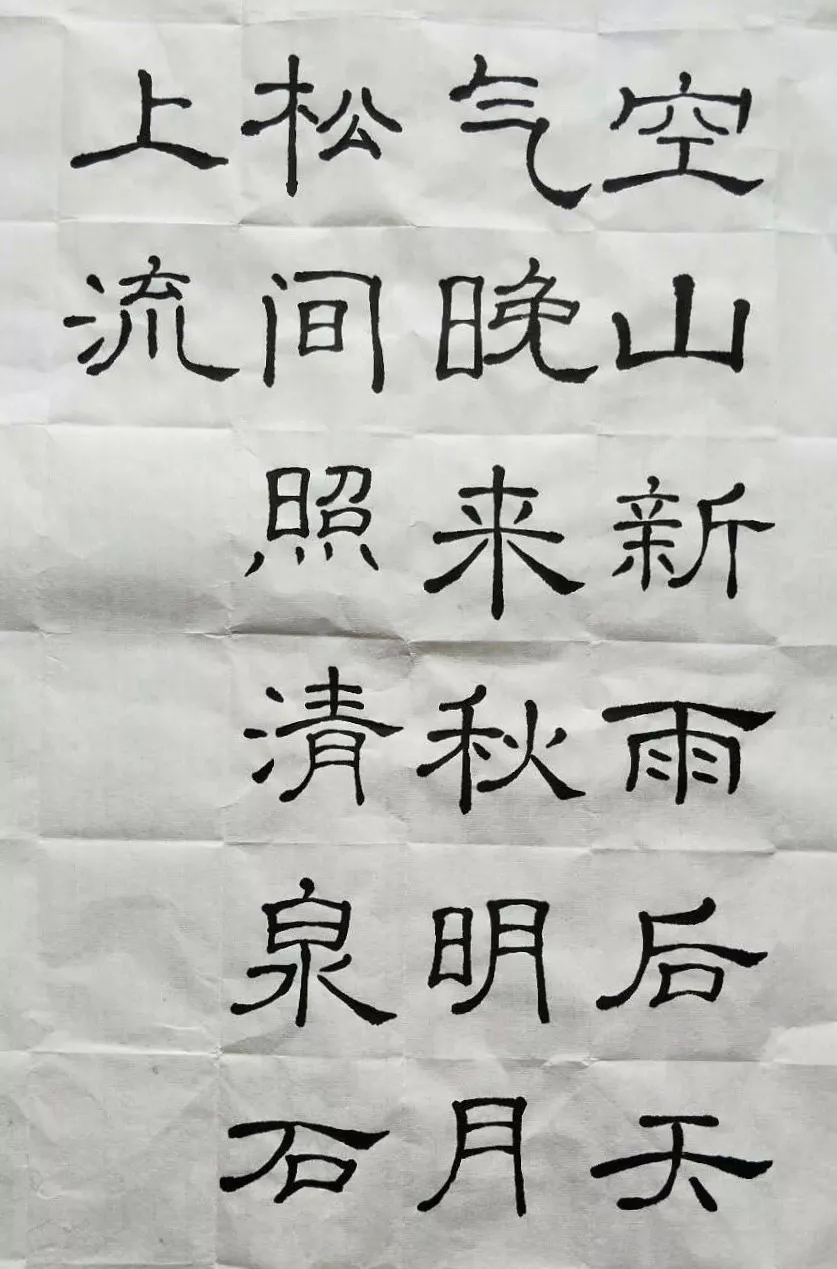 空山新雨后天
气晚来秋明月
松间照清泉石
上流